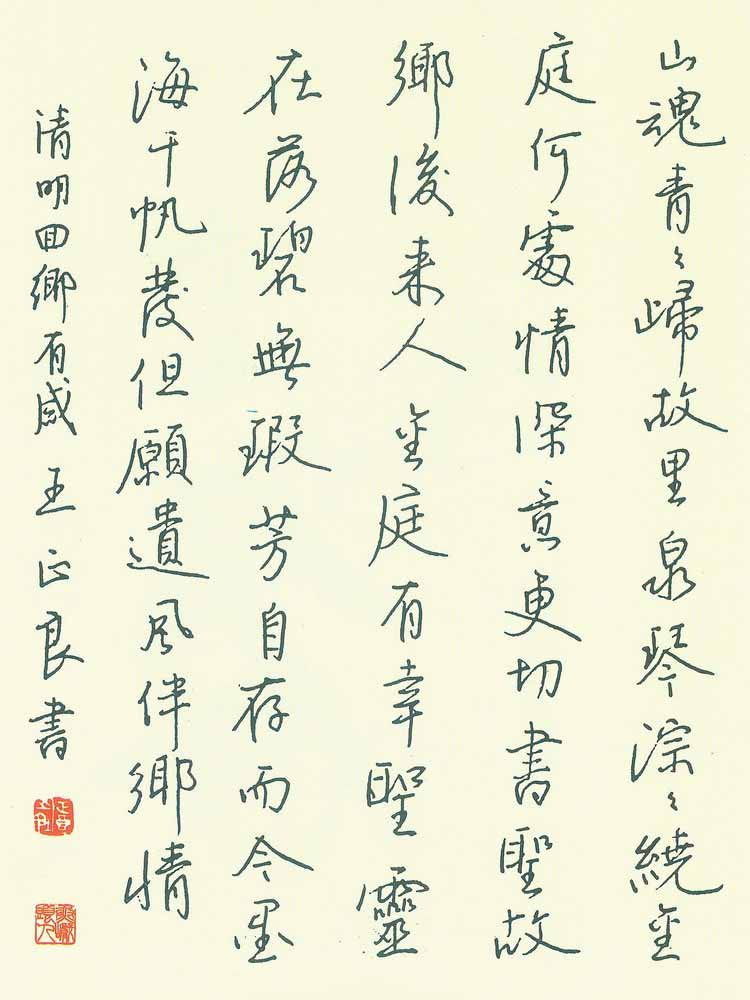 山魂青々歸故里泉琴淙々繞金
庭何處情深意更切書聖故
鄉後来人金庭有幸聖靈
在落碧無瑕芳自存而今墨
海千帆發但願遺風伴鄉情
清明回鄉有感 王正良書